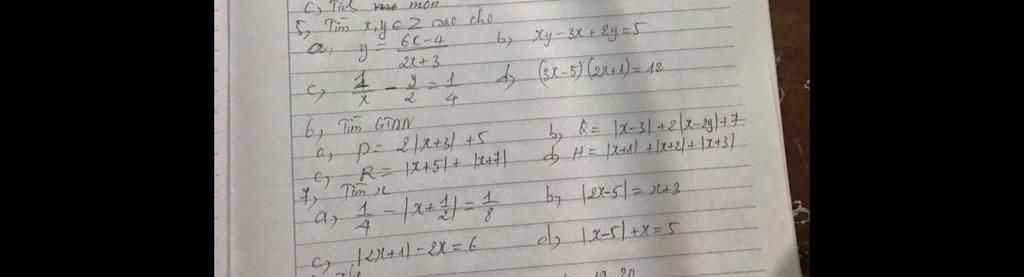 c,
5, Tìm x, y ∈ Z sao cho
a, y = (6x-4)/(2x+3) b, xy - 3x + 2y = 5
c, 1/x - y/2 = 1/4 d, (3x-5)(2x+1) = 12
6, Tìm GTNN
a, P = 2|x+3| + 5 b, Q = |x-3| + 2|x-2y| + 7
c, R = |x+5| + |x+7| d, H = |x+1| + |x+2| + |x+3|
7, Tìm x
a, 1/4 - |x + 1/2| = 1/8 b, |2x-5| = x+3
c, |2x+1| - 2x = 6 d, |x-5| + x = 5